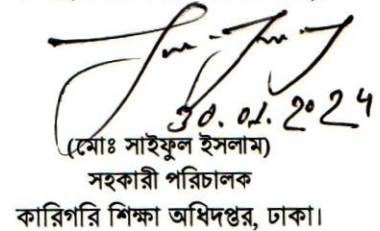 30.01.2024
(মোঃ সাইফুল ইসলাম)
সহকারী পরিচালক
কারিগরি শিক্ষা অধিদপ্তর, ঢাকা।